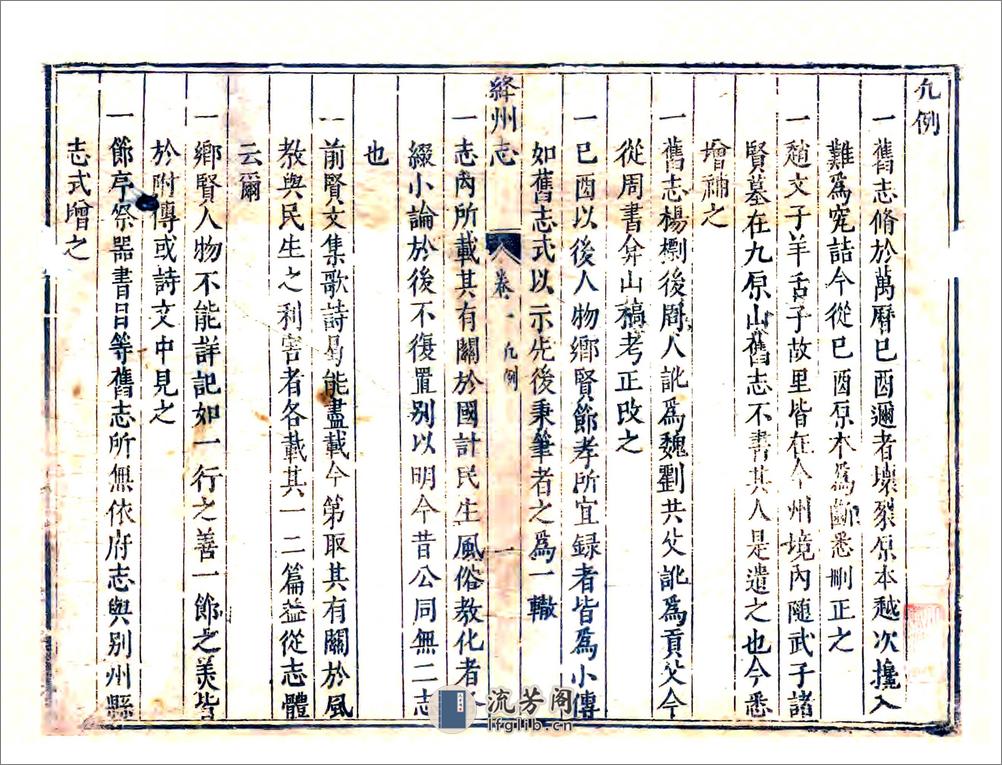 凢例
一舊志脩於萬曆己酉邇者壞裂原本越次攙入
難爲究詰今從己酉原本爲斷悉刪正之
一趙文子羊舌子故里皆在今州境內隨武子諸
賢墓在九原山舊志不書其人是遺之也今悉
增補之
一舊志楊㯹後周人訛爲魏劉共父訛爲貢父今
從周書弇山稿考正改之
一己酉以後人物鄉賢節孝所宜録者皆爲小傳
如舊志式以示先後秉筆者之爲一轍
絳州志
卷一
凢例
一
一志內所載其有關於國計民生風俗敎化者
綴小論於後不復置别以明今昔公同無二志
也
一前賢文集歌詩曷能盡載今第取其有關於風
敎與民生之利害者各載其一二篇益從志體
云爾
一鄉賢人物不能詳記如一行之善一節之美皆
於附傳或詩文中見之
一節亭祭器書目等舊志所無依府志與别州縣
志式增之
流芳阁
lfglib.cn